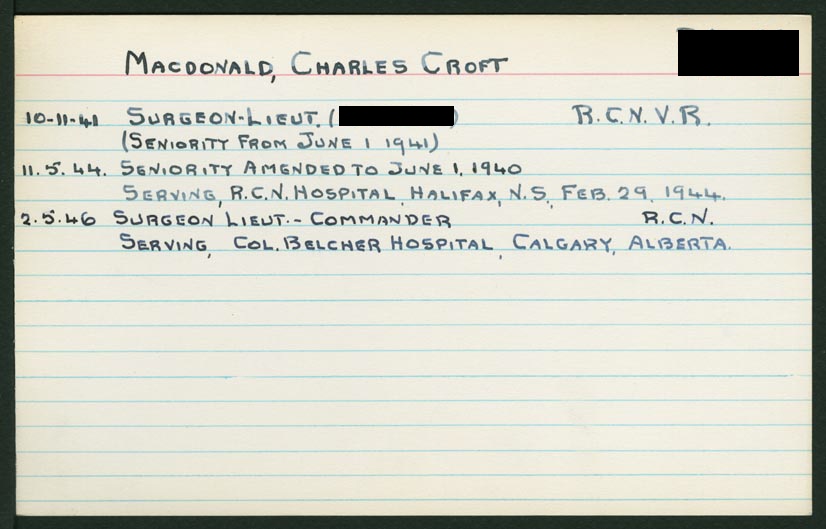 MACDONALD, CHARLES CROFT
10-11-41 SURGEON-LIEUT. ( ) R.C.N.V.R.
(SENIORITY FROM JUNE 1 1941)
11.5.44. SENIORITY AMENDED TO JUNE 1, 1940
SERVING, R.C.N. HOSPITAL, HALIFAX, N.S, FEB. 29, 1944.
2.5.46 SURGEON LIEUT.- COMMANDER R.C.N.
SERVING, COL. BELCHER HOSPITAL, CALGARY, ALBERTA.